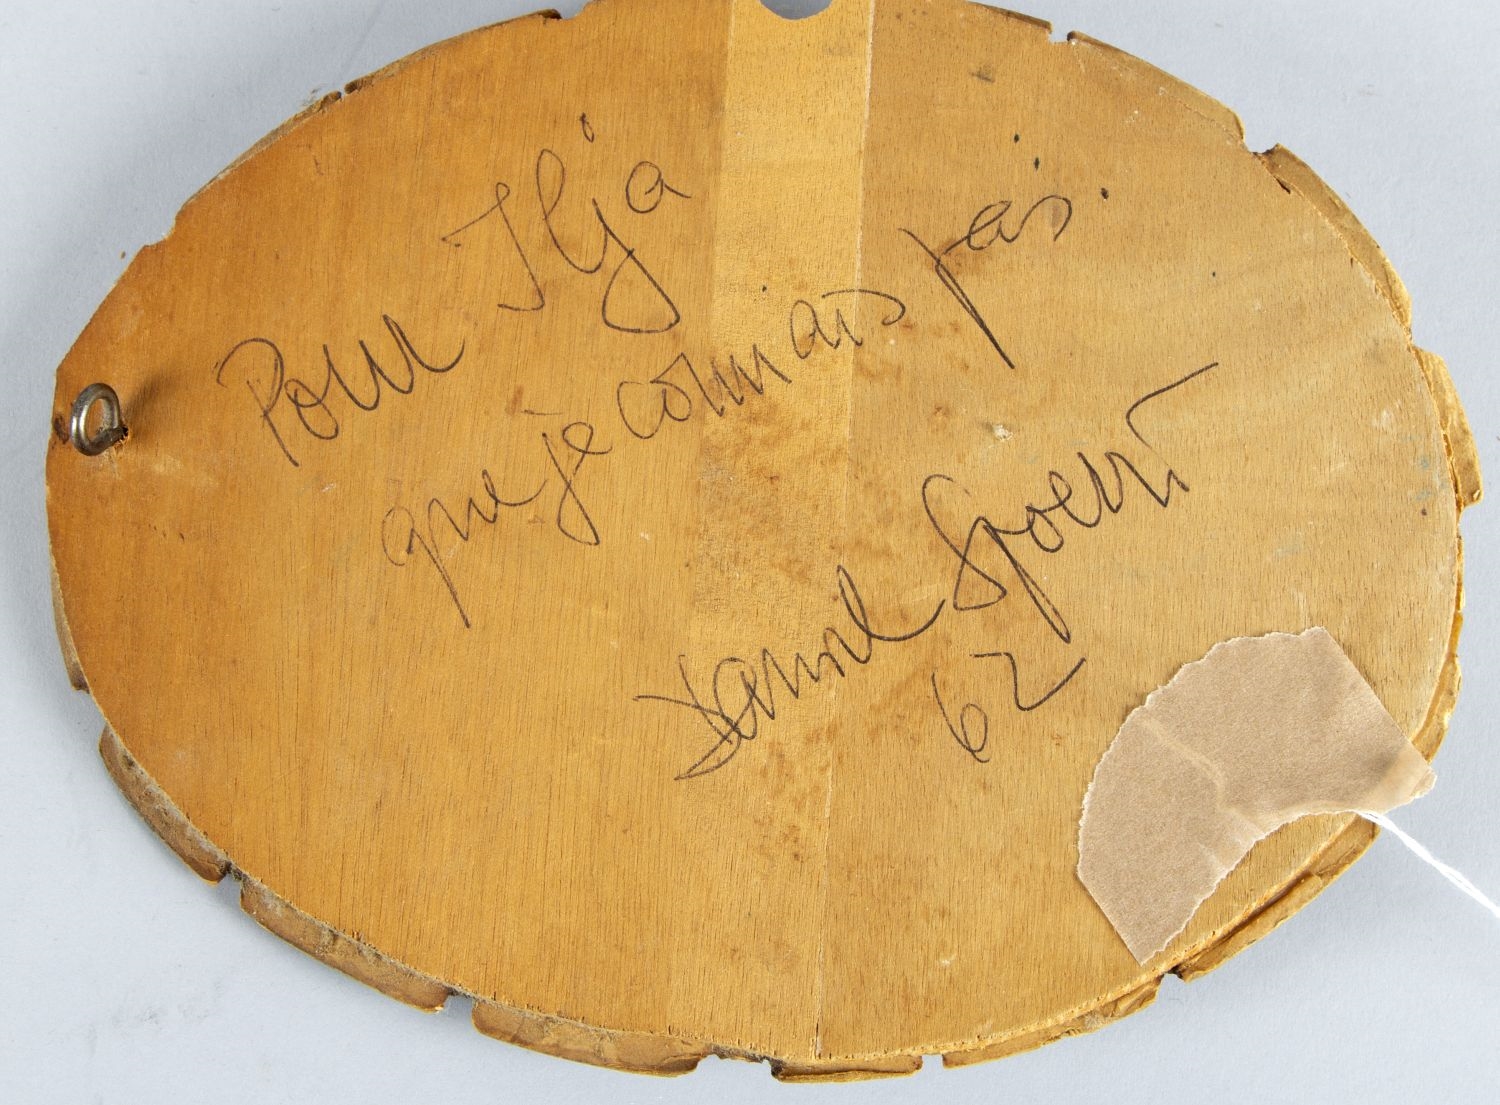 Pour Ilja
que je connais pas.
Daniel Spoerri
62